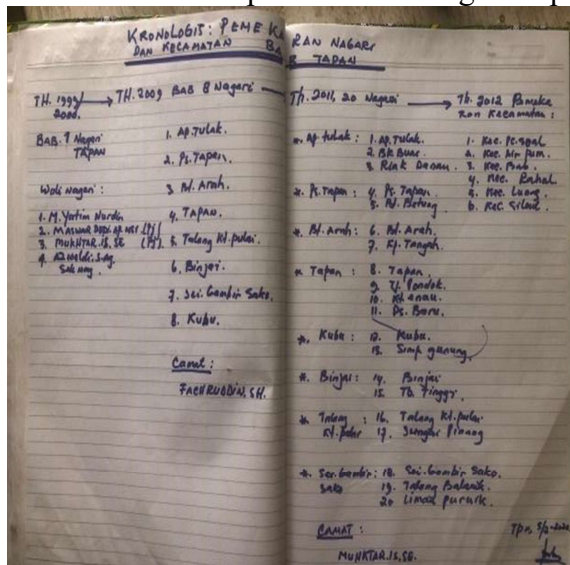 KRONOLOGIS: PEMEKARAN NAGARI
DAN KECAMATAN BAB TAPAN
TH. 1999/2000. → TH. 2009 BAB 8 Nagari → Th. 2011, 20 Nagari → Th. 2012 Pemeka
ran Kecamatan:
BAB. 1 Nagari
TAPAN
Wali Nagari:
1. M. Yatim Nurdin
2. MASWAR
3. MUKHTAR. IS. SE (PJ)
4. AZWALDI. S.Ag
1. AP. Tulak.
2. Ps. Tapan.
3. Bt. Arah.
4. TAPAN.
5. Talang Kt. pulai.
6. Binjai.
7. Sei. Gambir Sako.
8. Kubu.
Camat:
FACHRUDDIN, SH.
*. AP. tulak: 1. AP. Tulak.
2. BK. Buai.
3. Riak Danau.
* Ps. Tapan: 4. Ps. Tapan.
5. Bt. Betung.
* Bt. Arah: 6. Bt. Arah.
7. Kp. Tangah.
* Tapan: 8. Tapan.
9. Tj. Pondok.
10. Kt. Anau.
11. Ds. Baru.
*. Kubu: 12. Kubu.
13. Simp. gunung.
*. Binjai: 14. Binjai
15. Tb. Tinggi.
* Talang Kt. pulai: 16. Talang Kt. pulai.
17. Sungai Pinang
*. Sei. Gambir Sako: 18. Sei. Gambir Sako.
19. Talang Balarik.
20 Limau puruik.
CAMAT:
MUKHTAR. IS. SE.
1. Kec. Pc. Soal
2. Kec. Air pura.
3. Kec. Bab.
4. Kec. Rahul
5. Kec. Lunang
6. Kec. Silaut